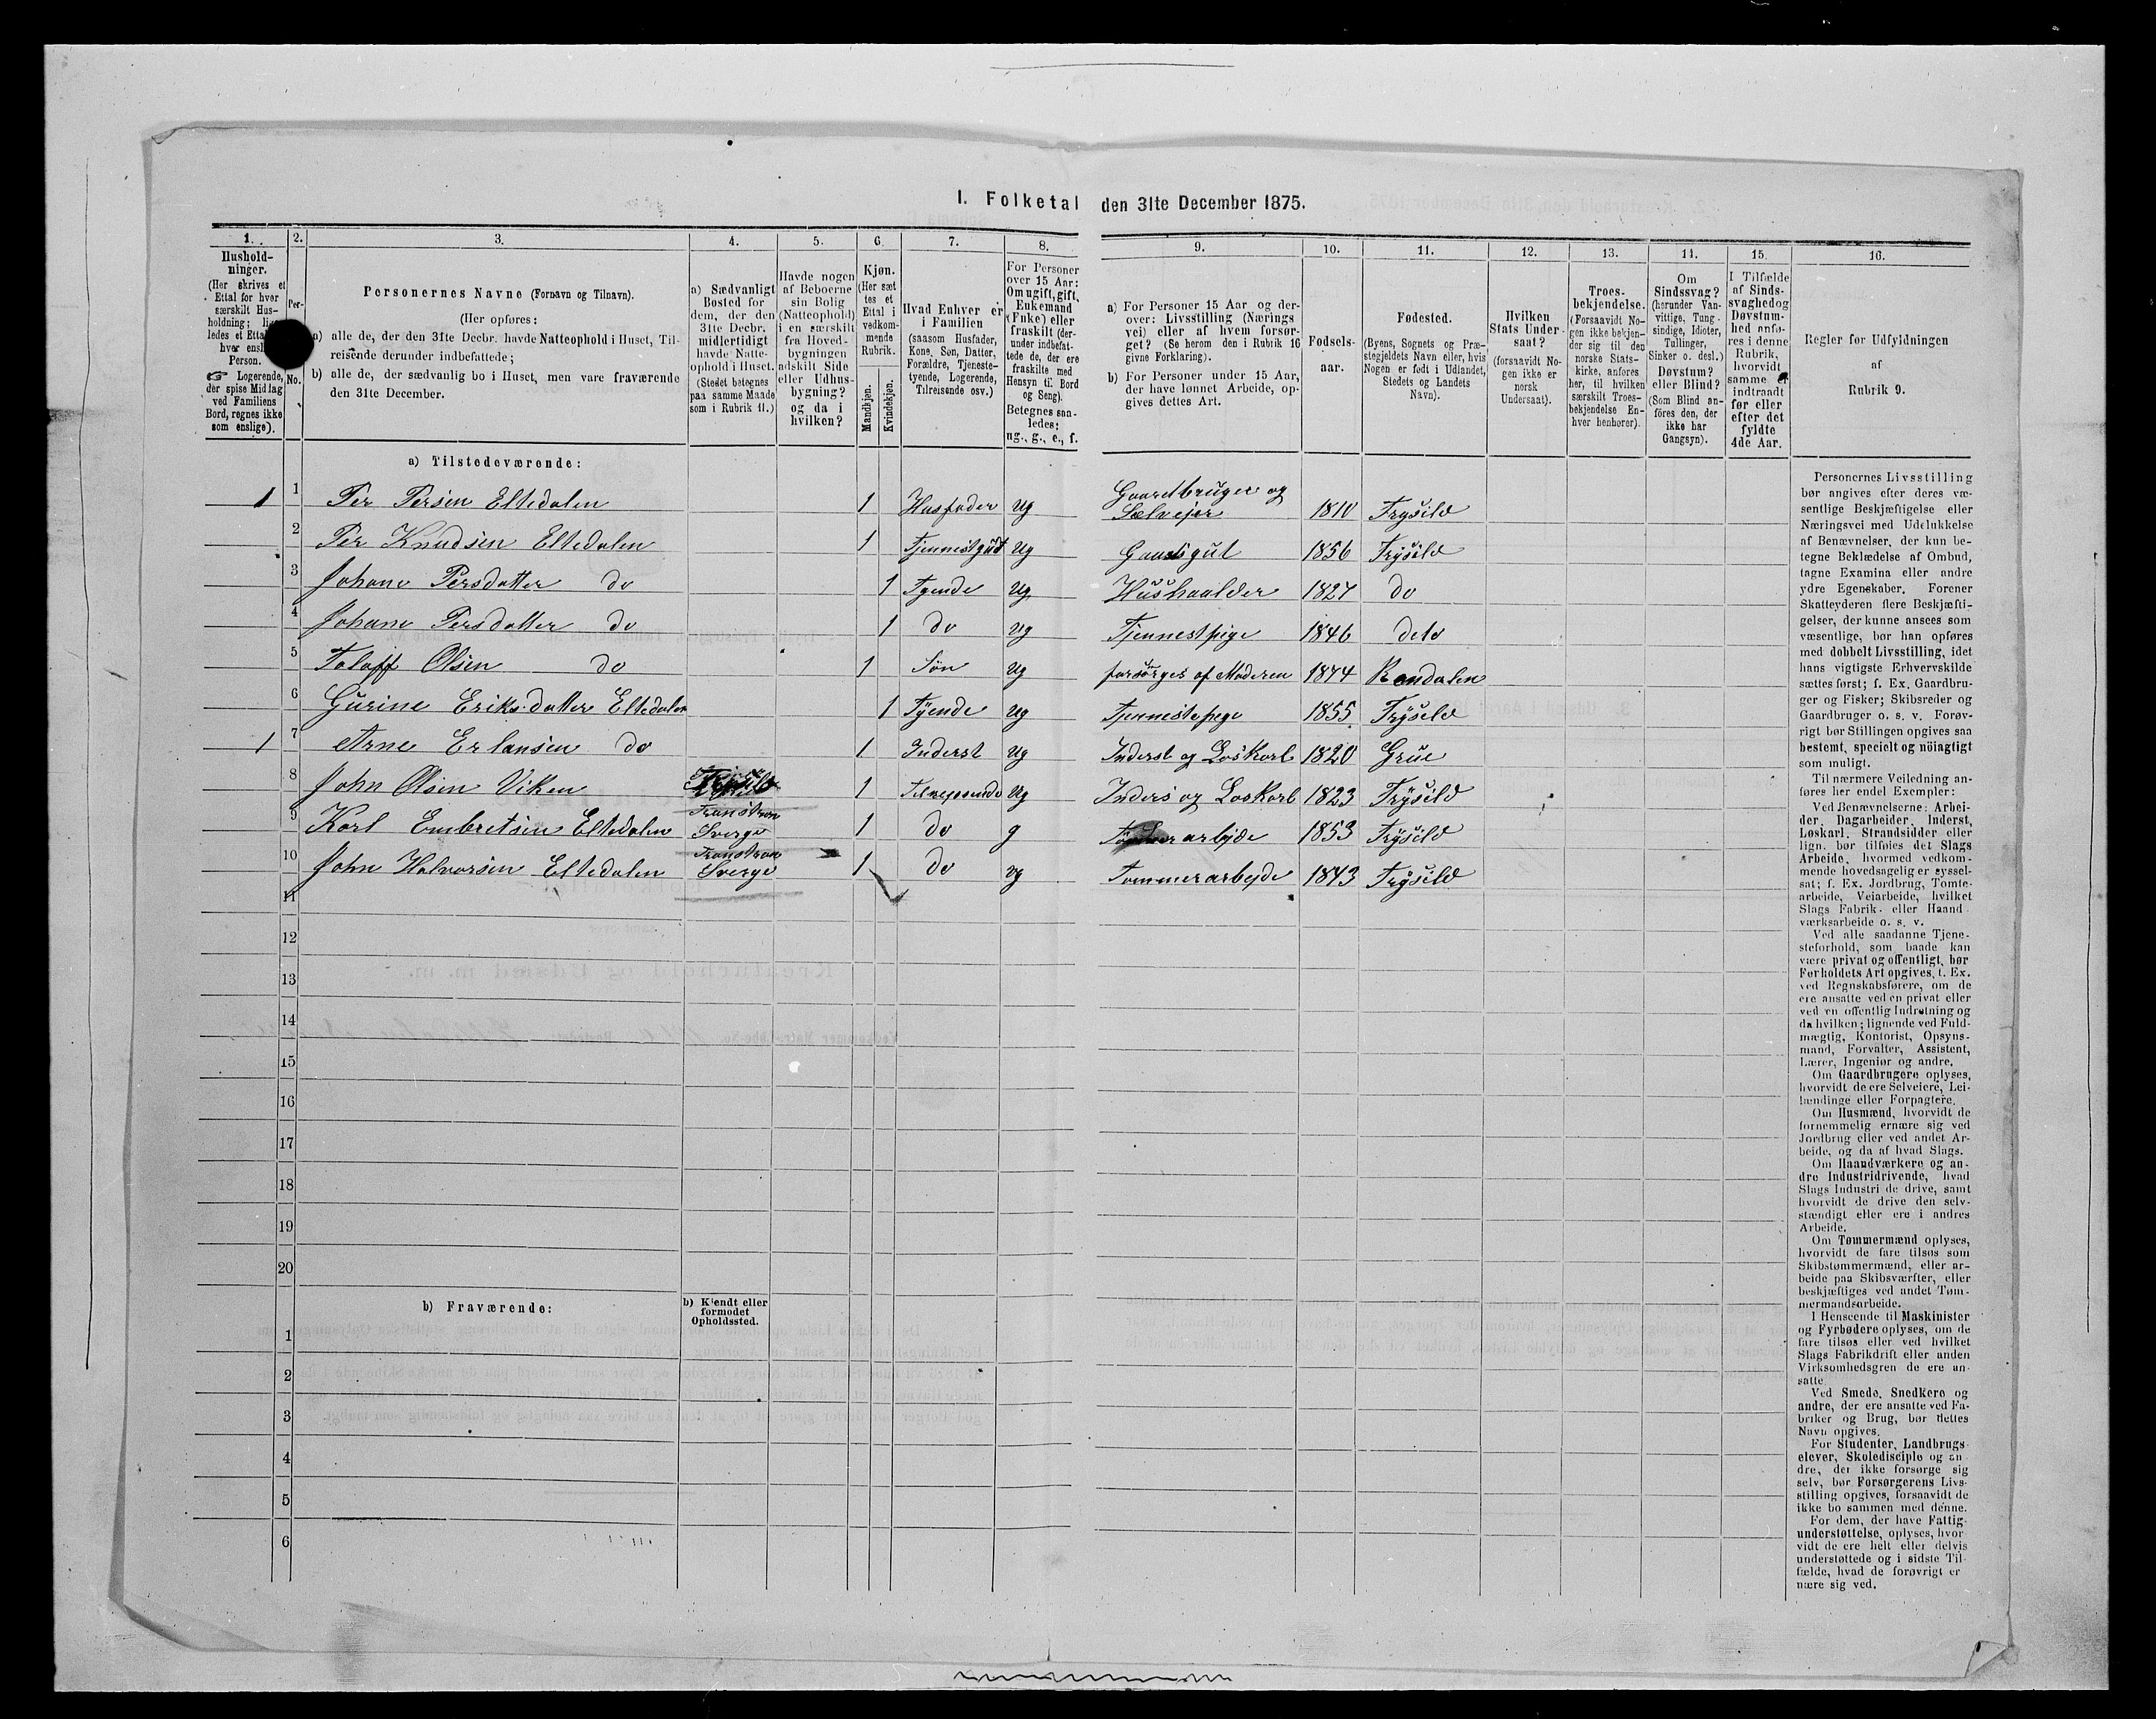 I. Folketal den 31te December 1875.
1. 2. 3. 4. 5. 6. 7. 8. 9. 10. 11. 12. 13. 14. 15. 16.
Personernes Navne (Fornavn og Tilnavn).
(Her opføres:
a) alle de, der den 31te Decbr. havde Natteophold i Huset, Tilreisende derunder indbefattede;
b) alle de, der sædvanlig bo i Huset, men vare fraværende den 31te December.
a) Sædvanligt Bosted for dem, der den 31te Decbr. midlertidigt havde Natteophold i Huset.
(Stedet betegnes paa samme Maade som i Rubrik 11.)
Havde nogen af Beboerne sin Bolig (Natteophold) i en særskilt fra Hovedbygningen adskilt Side eller Udhusbygning? og da i hvilken?
Kjøn.
(Her sættes et Ettal i vedkommende Rubrik.
Mandkjøn. Kvindekjøn.
Hvad Enhver er i Familien
(saasom Husfader, Kone, Søn, Datter, Forældre, Tjenestetyende, Logerende, Tilreisende osv.)
For Personer over 15 Aar: Om ugift, gift, Enkemand (Enke) eller fraskilt (derunder indbefattede de, der ere fraskilte med Hensyn til Bord og Seng).
Betegnes saaledes: ug., g., e., f.
a) For Personer 15 Aar og derover: Livsstilling (Nærings vei) eller af hvem forsørget? (Se herom den i Rubrik 16 givne Forklaring).
b) For Personer under 15 Aar, der have lønnet Arbeide, opgives dettes Art.
Fødselsaar.
Fødested.
(Byens, Sognets og Præstegjeldets Navn eller, hvis Nogen er født i Udlandet, Stedets og Landets Navn).
Hvilken Stats Undersaat?
(forsaavidt Nogen ikke er norsk Undersaat).
Troesbekjendelse.
(Forsaavidt Nogen ikke bekjender sig til den norske Statskirke, anføres her, til hvilken særskilt Troesbekjendelse Enhver henhører).
Om Sindssvag? (herunder Vanvittige, Tungsindige, Idioter, Tullinger, Sinker o. desl.) Døvstum? eller Blind? (Som Blind anføres den, der ikke har Gangsyn).
I Tilfælde af Sindssvaghed og Døvstumhed anføres i denne Rubrik, hvorvidt samme er indtraadt før eller efter det fyldte 4de Aar.
Regler for Udfyldningen af Rubrik 9.
a) Tilstedeværende:
1 1 Per Persen Eltedalen 1 Husfader ug Gaardbruger og Sælvejer 1810 Trysild
2 Per Knudsen Eltedalen 1 Tjennestgut ug Gaardsgut 1856 Trysild
3 Johane Persdatter do 1 Tyende ug Husholder 1827 do
4 Johane Persdatter do 1 do ug Tjennestpige 1846 deto
5 Toloff Olsen do 1 Søn ug forsørges af Moderen 1874 Rendalen
6 Gurine Eriksdatter Eltedalen 1 Tyende ug Tjennestepige 1855 Trysild
1 7 Arne Erlansen do 1 Inderst ug Inderst og Løskarl 1820 Grue
8 John Olsen Viken Trysild 1 Tilreisende ug Inders og Løskarl 1823 Trysild
9 Karl Embretsen Eltedalen Transtran Sverge 1 do g Tømmerarbejde 1853 Trysild
10 John Halvorsen Eltedalen Transtran Sverge 1 do ug Tommerarbejde 1843 Trysild
11
12
13
14
15
16
17
18
19
20
b) Fraværende:
b) Kjendt eller formodet Opholdssted.
1
2
3
4
5
6
Personernes Livsstilling
bør angives efter deres væ-
sentlige Beskjæftigelse eller
Næringsvei med Udelukkelse
af Benævnelser, der kun be-
tegne Beklædelse af Ombud,
tagne Examina eller andre
ydre Egenskaber. Forener
Skatteyderen flere Beskjæfti-
gelser, der kunne ansees som
væsentlige, bør han opføres
med dobbelt Livsstilling, idet
hans vigtigste Erhvervskilde
sættes først; f. Ex. Gaardbru-
ger og Fisker; Skibsreder og
Gaardbruger o. s. v. Forøv-
rigt bør Stillingen opgives saa
bestemt, specielt og nöiagtigt
som muligt.
Til nærmere Veiledning an-
føres her endel Exempler:
Ved Benævnelserne: Arbei-
der, Dagarbeider, Inderst,
Løskarl, Strandsidder eller
lign. bør tilføies det Slags
Arbeide, hvormed vedkom-
mende hovedsagelig er syssel-
sat; f. Ex. Jordbrug, Tomte-
arbeide, Veiarbeide, hvilket
Slags Fabrik- eller Haand-
værksarbeide o. s. v.
Ved alle saadanne Tjene-
steforhold, som baade kan
være privat og offentligt, bør
Forholdets Art opgives, f. Ex.
ved Regnskabsførere, om de
ere ansatte ved en privat eller
ved en offentlig Indretning og
da hvilken; lignende ved Fuld-
mægtig, Kontorist, Opsyns-
mand, Forvalter, Assistent,
Lærer, Ingeniør og andre.
Om Gaardbrugere oplyses,
hvorvidt de ere Selveiere, Lei-
lændinge eller Forpagtere.
Om Husmænd, hvorvidt de
fornemmelig ernære sig ved
Jordbrug eller ved andet Ar-
beide, og da af hvad Slags.
Om Haandværkere og an-
dre Industridrivende, hvad
Slags Industri de drive, samt
hvorvidt de drive den selv-
stændigt eller ere i andres
Arbeide.
Om Tømmermænd oplyses,
hvorvidt de fare tilsøs som
Skibstømmermænd, eller ar-
beide paa Skibsværfter, eller
beskjæftiges ved andet Tøm-
mermandsarbeide.
I Henseende til Maskinister
og Fyrbødere oplyses, om de
fare tilsøs eller ved hvilket
Slags Fabrikdrift eller anden
Virksomhedsgren de ere an-
satte.
Ved Smede, Snedkere og
andre, der ere ansatte ved Fa-
briker og Brug, bør dettes
Navn opgives.
For Studenter, Landbrugs-
elever, Skoledisciple og an-
dre, der ikke forsørge sig
selv, bør Forsørgerens Livs-
stilling opgives, forsaavidt de
ikke bo sammen med denne.
For dem, der have Fattig-
understøttelse, oplyses, hvor-
vidt de ere helt eller delvis
understøttede og i sidste Til-
fælde, hvad de forøvrigt er-
nære sig ved.